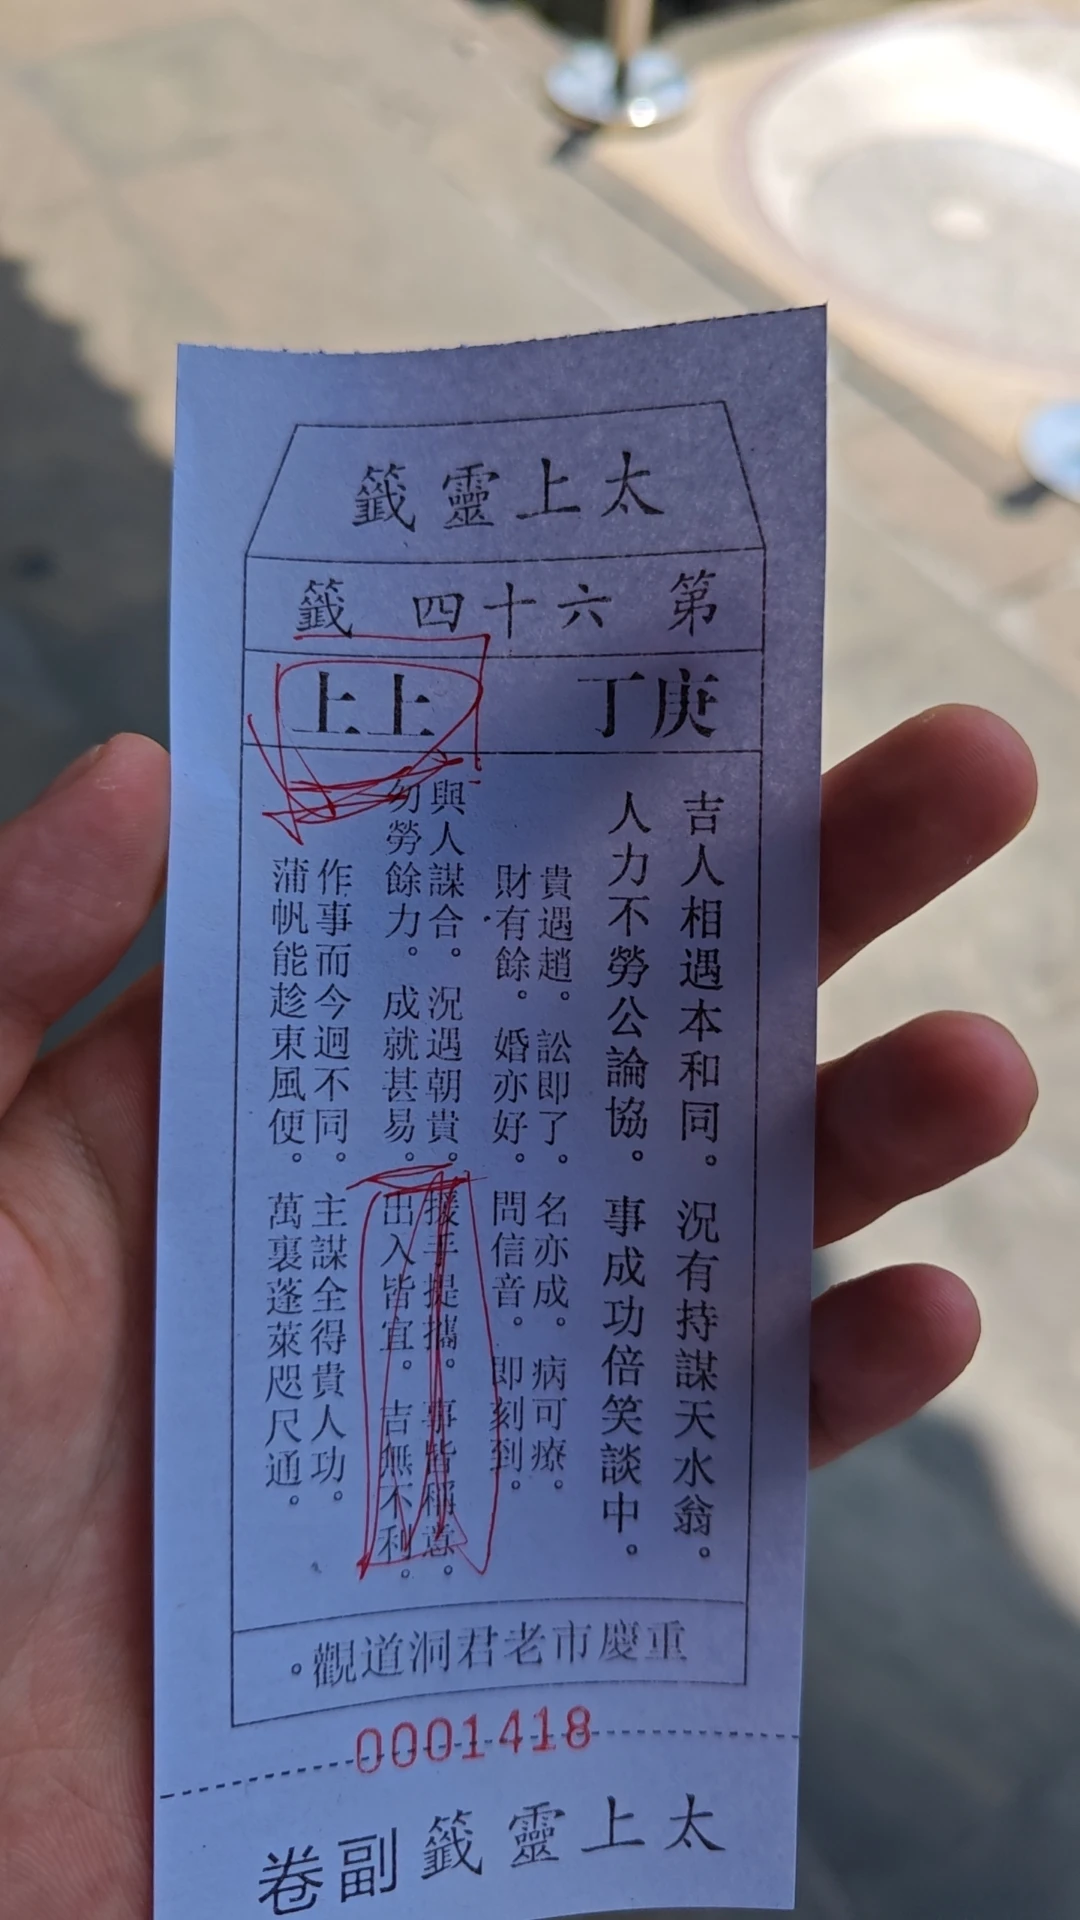 太上靈籤
第六十四籤
庚丁 上上
吉人相遇本和同。況有持謀天水翁。
人力不勞公論協。事成功倍笑談中。
貴遇趙。訟即了。名亦成。病可療。
財有餘。婚亦好。問信音。即刻到。
與人謀合。況遇朝貴。援手提攜。事皆稱意。
勿勞餘力。成就甚易。出入皆宜。吉無不利。
作事而今迥不同。主謀全得貴人功。
蒲帆能趁東風便。萬裏蓬萊咫尺通。
重慶市老君洞道觀。
0001418
太上靈籤副卷